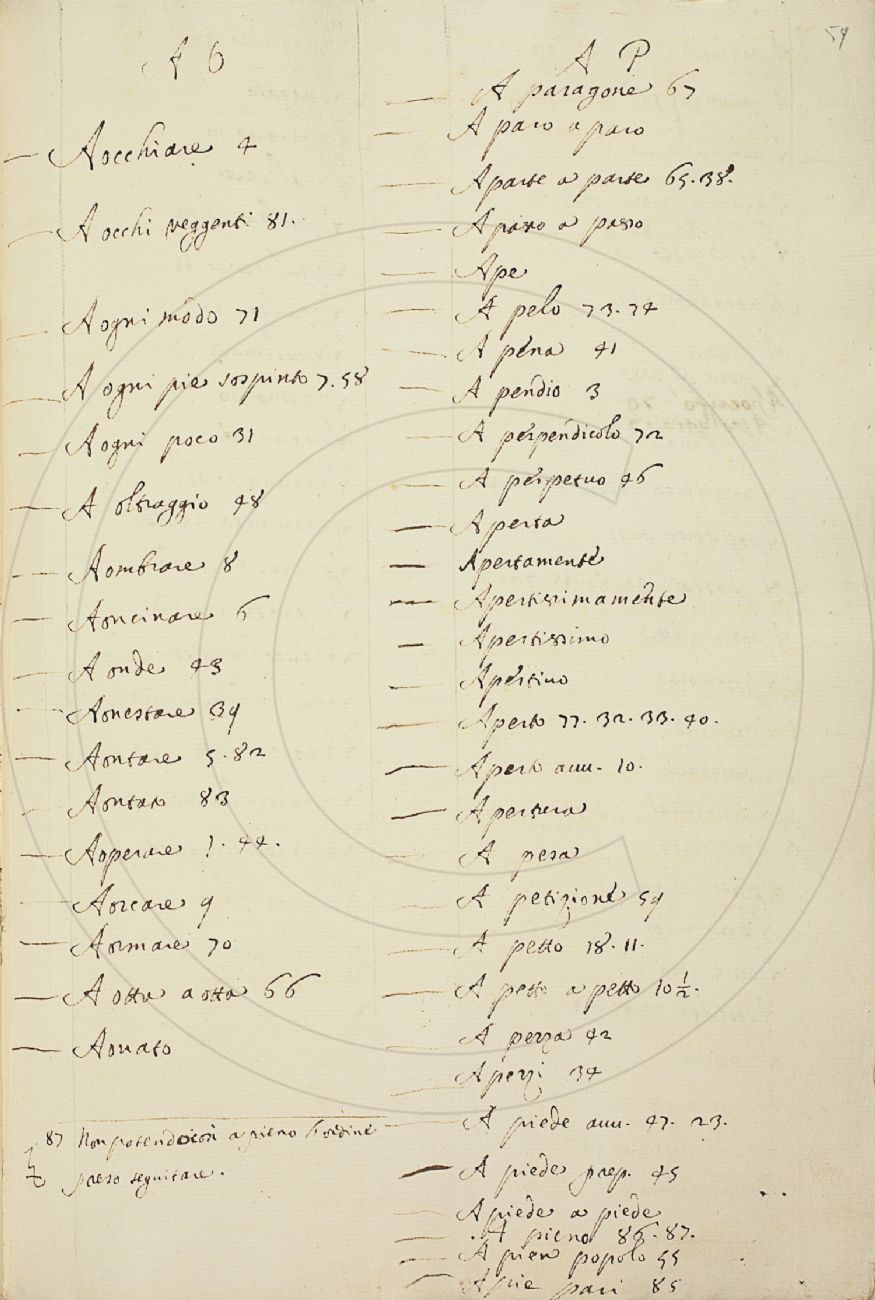 59
A O
Aocchiare 4
A occhi veggenti 81.
A ogni modo 71
A ogni pie sospinto 7. 58
A ogni poco 31
A oltraggio 48
Aombrare 8
Aoncinare 6
A onde 43
Aonestare 39
Aontare 5. 82
Aontato 83
Aoperare 1. 44.
Aorcare 9
Aormare 70
A otta a otta 66
Aouato
87 Non potendosi a pieno l'ordine
preso seguitare.
A P
A paragone 67
A paro a paro
Aparte a parte 65. 38.
A passo a passo
Ape
A pelo 73. 74
A pena 41
A pendio 3
A perpendicolo 72
A perpetuo 46
Aperta
Apertamente
Apertissimamente
Apertissimo
Apertivo
Aperto 77. 32. 33. 40.
Aperto auu. 10.
Apertura
A pesa
A petizione 59
A petto 18. 11.
A petto a petto 10 1/2.
A pezza 42
A pezzi 34
A piede auu. 47. 23.
A piede prep. 45
A piede a piede
A pieno 86. 87.
A pien popolo 55
A pie pari 85